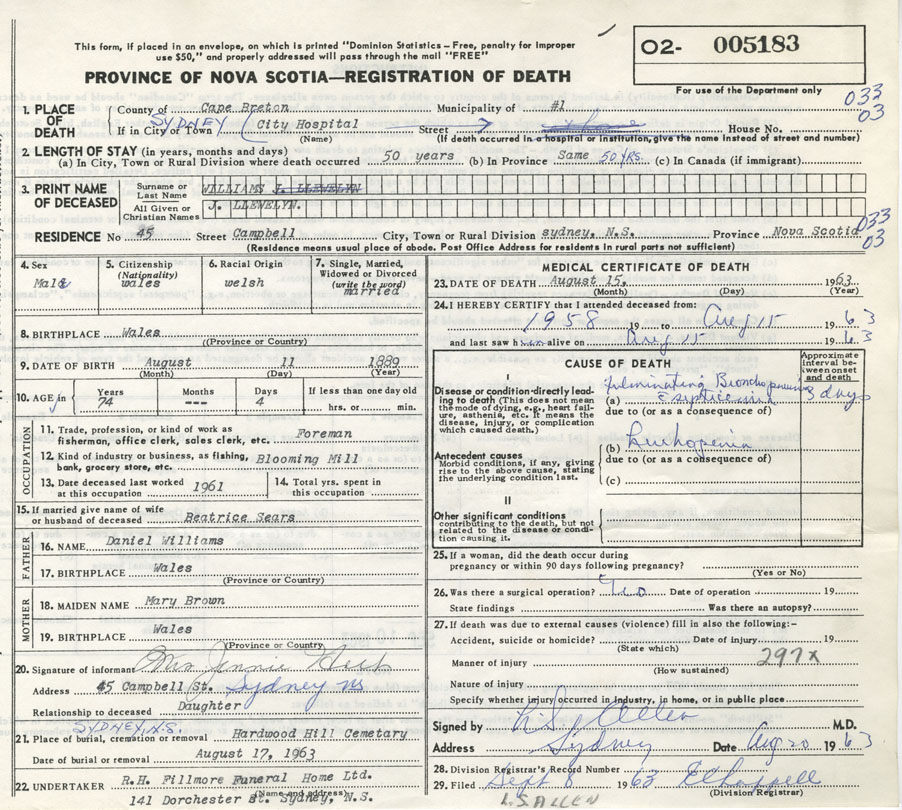 This form, if placed in an envelope, on which is printed "Dominion Statistics – Free, penalty for improper
use $50," and properly addressed will pass through the mail "FREE"
O2- 005183
For use of the Department only
PROVINCE OF NOVA SCOTIA—REGISTRATION OF DEATH
033
03
1. PLACE OF DEATH
County of Cape Breton Municipality of #1
If in City or Town SYDNEY (City Hospital Street House No.
(Name) (If death occurred in a hospital or institution, give the name instead of street and number)
2. LENGTH OF STAY (in years, months and days)
(a) In City, Town or Rural Division where death occurred 50 years (b) In Province Same 50 YRS. (c) In Canada (if immigrant)
3. PRINT NAME OF DECEASED
Surname or Last Name WILLIAMS J. LLEWELYN
All Given or Christian Names J. LLEWELYN.
033
03
RESIDENCE No 45 Street Campbell City, Town or Rural Division sydney, N.S. Province Nova Scotia
(Residence means usual place of abode. Post Office Address for residents in rural parts not sufficient)
4. Sex
Male
5. Citizenship (Nationality)
wales
6. Racial Origin
welsh
7. Single, Married, Widowed or Divorced (write the word)
married
8. BIRTHPLACE Wales
(Province or Country)
9. DATE OF BIRTH August 11 1889
(Month) (Day) (Year)
10. AGE
Years Months Days If less than one day old
74 --- 4 hrs. or min.
OCCUPATION
11. Trade, profession, or kind of work as
fisherman, office clerk, sales clerk, etc. Foreman
12. Kind of industry or business, as fishing,
bank, grocery store, etc. Blooming Mill
13. Date deceased last worked
at this occupation 1961
14. Total yrs. spent in
this occupation
15. If married give name of wife
or husband of deceased Beatrice Sears
FATHER
16. NAME Daniel Williams
17. BIRTHPLACE Wales
(Province or Country)
MOTHER
18. MAIDEN NAME Mary Brown
19. BIRTHPLACE Wales
(Province or Country)
20. Signature of informant Mrs Jennie
Address 45 Campbell St. Sydney NS
Relationship to deceased Daughter
SYDNEY, N.S.
21. Place of burial, cremation or removal Hardwood Hill Cemetary
Date of burial or removal August 17, 1963
22. UNDERTAKER R.H. Fillmore Funeral Home Ltd.
(Name and address)
141 Dorchester St. Sydney, N.S.
MEDICAL CERTIFICATE OF DEATH
23. DATE OF DEATH August 15, 1963
(Month) (Day) (Year)
24. I HEREBY CERTIFY that I attended deceased from:
1958 19 to Aug 15 1963
and last saw him alive on Aug 15 1963
CAUSE OF DEATH
Approximate interval between onset and death
I
Disease or condition directly leading to death (This does not mean the mode of dying, e.g., heart failure, asthenia, etc. It means the disease, injury, or complication which caused death.)
(a) Fulminating Bronchopneumonia 3 days
septicemia
due to (or as a consequence of)
Antecedent causes
Morbid conditions, if any, giving rise to the above cause, stating the underlying condition last.
(b) Leukopenia
due to (or as a consequence of)
(c)
II
Other significant conditions
contributing to the death, but not related to the disease or condition causing it.
25. If a woman, did the death occur during
pregnancy or within 90 days following pregnancy?
(Yes or No)
26. Was there a surgical operation? No Date of operation 19
State findings Was there an autopsy?
27. If death was due to external causes (violence) fill in also the following:–
Accident, suicide or homicide? Date of injury 19
(State which)
297x
Manner of injury
(How sustained)
Nature of injury
Specify whether injury occurred in industry, in home, or in public place
Signed by L Sy Allen M.D.
Address Sydney Date Aug 20 1963
28. Division Registrar's Record Number
29. Filed Sept 8 1963 E Chappell
(Division Registrar)
L.S ALLEN